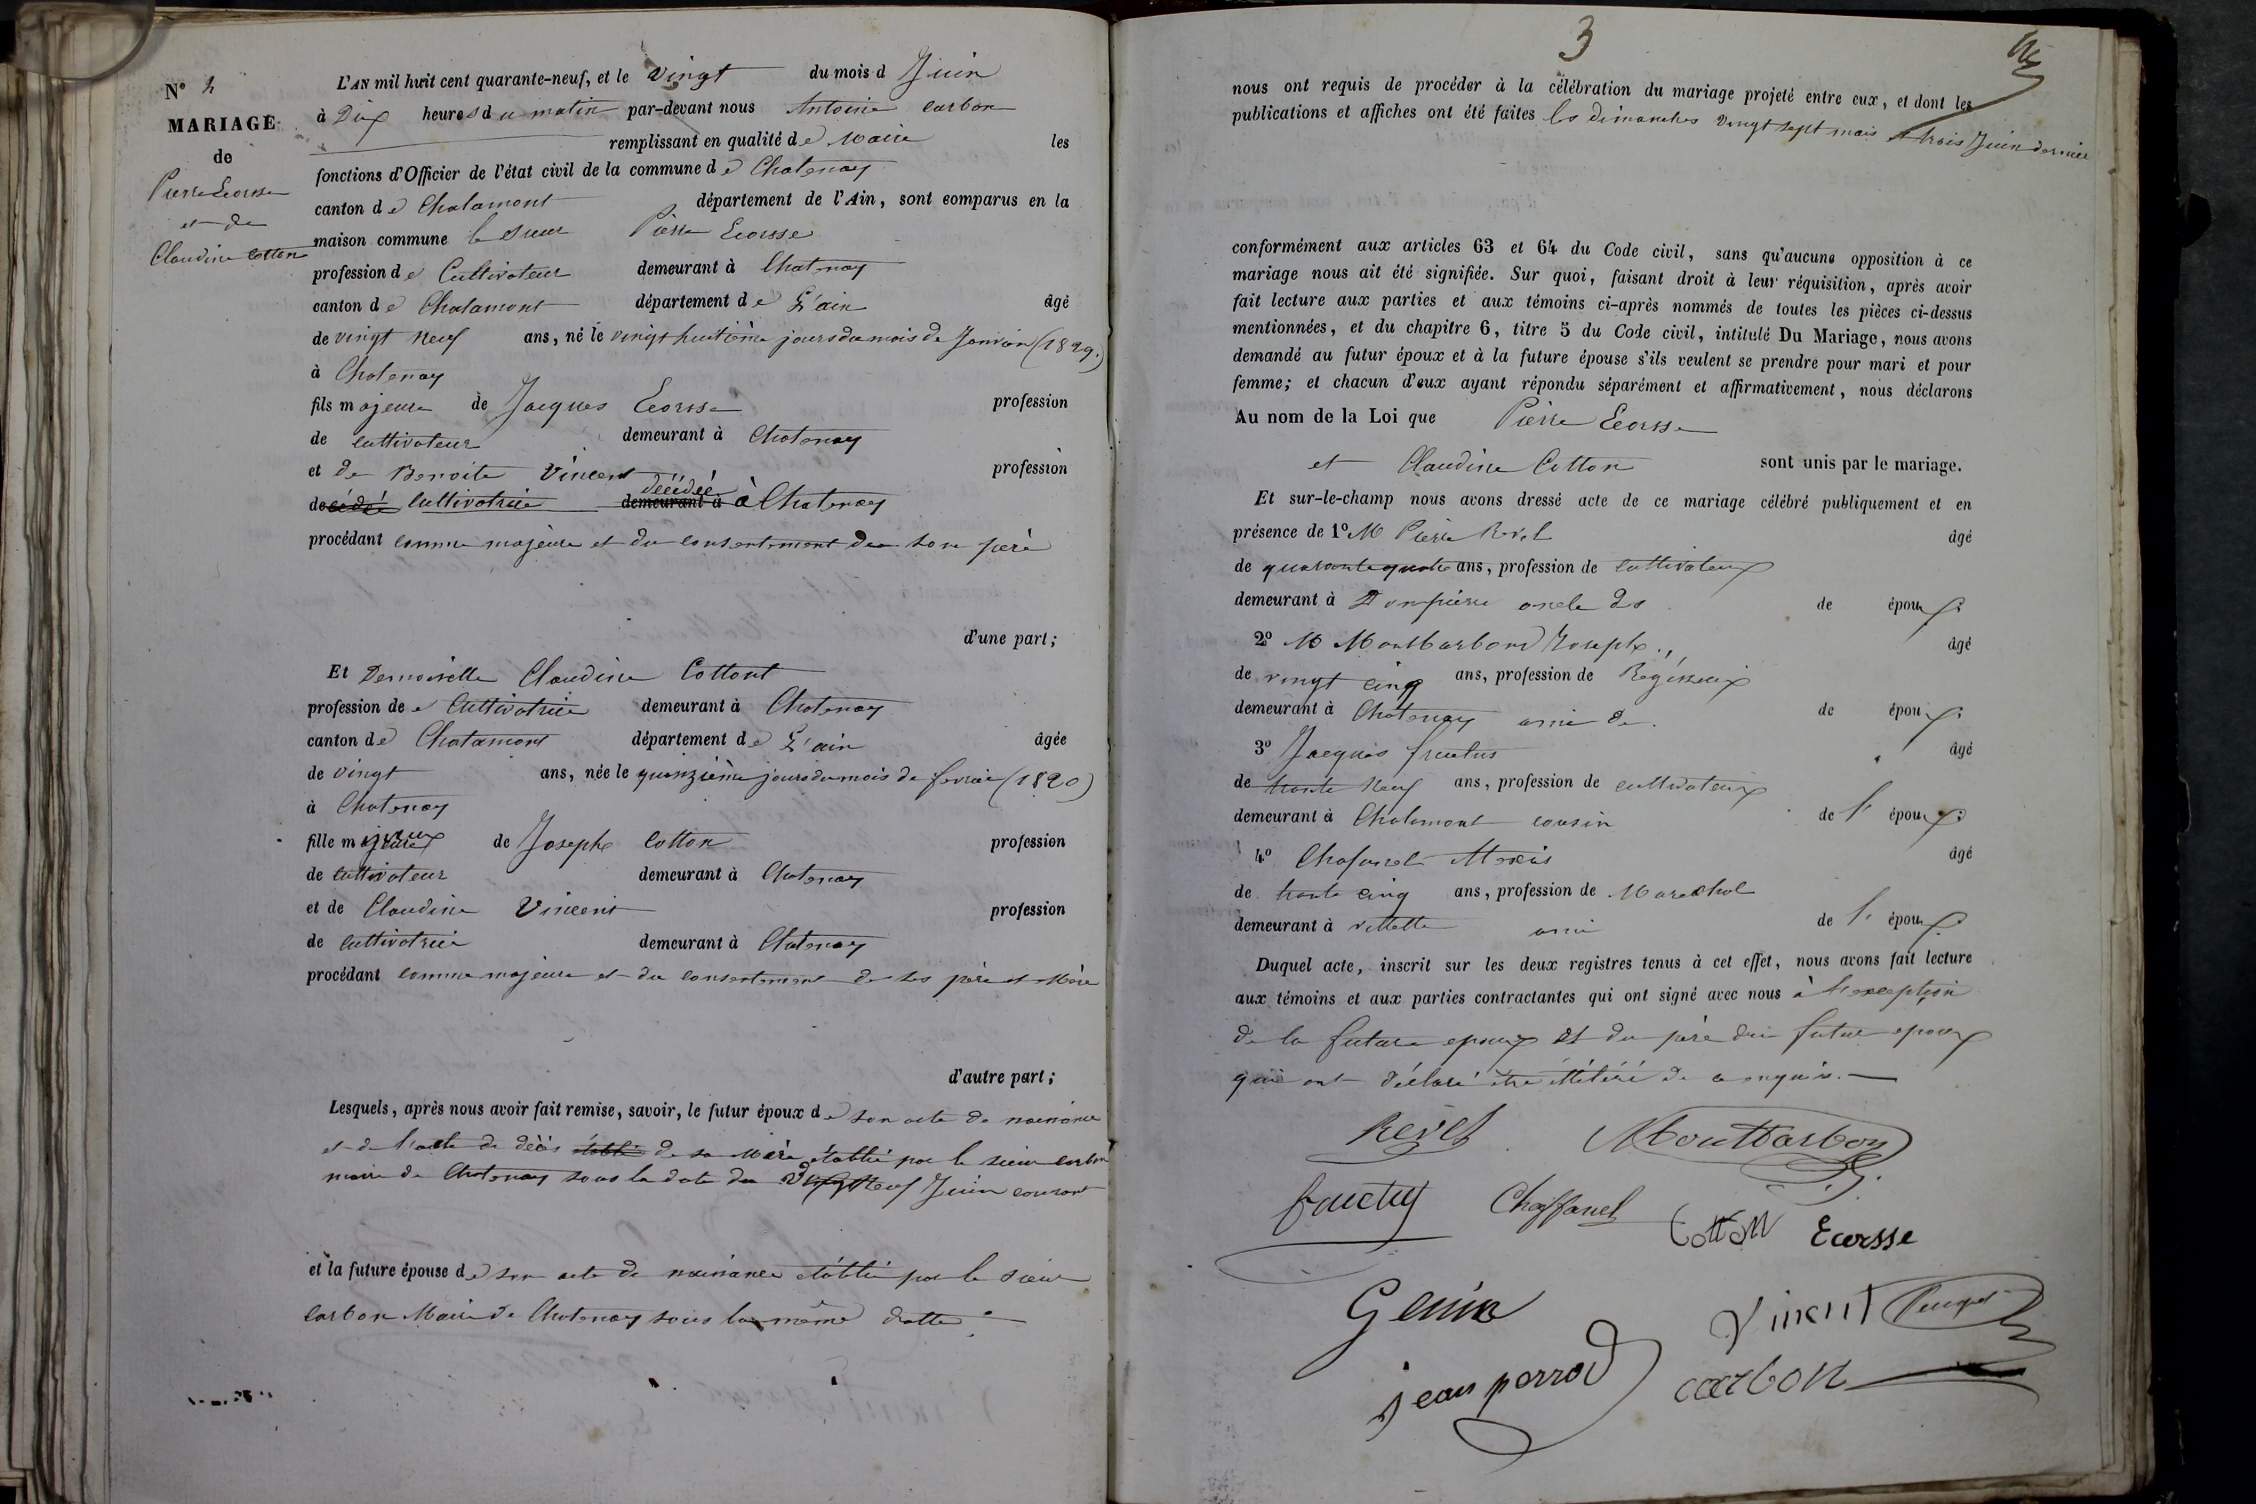 N° 2
MARIAGE
de
Pierre Ecorsse
et de
Claudine Cotton
L'AN mil huit cent quarante-neuf, et le vingt du mois d Juin
à Dix heures du matin par-devant nous Antoine Carbon
remplissant en qualité de Maire les
fonctions d'Officier de l'état civil de la commune de Chatenay
canton de Chalamont département de l'Ain, sont comparus en la
maison commune le sieur Pierre Ecorsse
profession de Cultivateur demeurant à Chatenay
canton de Chalamont département de L'ain âgé
de vingt neuf ans, né le vingt huitième jours du mois de Janvier (1820.)
à Chatenay
fils majeur de Jacques Ecorsse profession
de cultivateur demeurant à Chatenay
et de Benoite Vincent profession
décédée
de cultivatrice demeurant à à Chatenay
procédant comme majeure et du consentement de son père
d'une part;
Et Demoiselle Claudine Cottont
profession de Cultivatrice demeurant à Chatenay
canton de Chalamont département de L'ain âgée
de vingt ans, née le quinzième jours du mois de fevrier (1820)
à Chatenay
fille majeure de Joseph Cotton profession
de cultivateur demeurant à Chatenay
et de Claudine Vincent profession
de cultivatrice demeurant à Chatenay
procédant comme majeure et du consentement de ses père et Mère
d'autre part;
Lesquels, après nous avoir fait remise, savoir, le futur époux de son acte de naissance
et de l'acte de décès de sa Mère établie par le sieur carbon
maire de Chatenay sous la date du neuf Juin courant
et la future épouse de son acte de naissance établie par le sieur
carbon Maire de Chatenay sous la même datte
3
nous ont requis de procéder à la célébration du mariage projeté entre eux, et dont les
publications et affiches ont été faites les dimanches vingt sept mais et trois Juin dernier
conformément aux articles 63 et 64 du Code civil, sans qu'aucune opposition à ce
mariage nous ait été signifiée. Sur quoi, faisant droit à leur réquisition, après avoir
fait lecture aux parties et aux témoins ci-après nommés de toutes les pièces ci-dessus
mentionnées, et du chapitre 6, titre 5 du Code civil, intitulé Du Mariage, nous avons
demandé au futur époux et à la future épouse s'ils veulent se prendre pour mari et pour
femme; et chacun d'eux ayant répondu séparément et affirmativement, nous déclarons
Au nom de la Loi que Pierre Ecorsse
et Claudine Cotton sont unis par le mariage.
Et sur-le-champ nous avons dressé acte de ce mariage célébré publiquement et en
présence de 1° M Pierre Revel âgé
de quarante quatre ans, profession de cultivateur
demeurant à Dompierre oncle de époux
2° M Montbarbon Joseph âgé
de vingt cinq ans, profession de Régisseur
demeurant à Chatenay ami de. de époux
3° Jacques fructus âgé
de trente Neuf ans, profession de cultivateur
demeurant à Chalamont cousin de l' époux
4° Chafanel Alexis âgé
de trente cinq ans, profession de Marechal
demeurant à villette ami de l' époux
Duquel acte, inscrit sur les deux registres tenus à cet effet, nous avons fait lecture
aux témoins et aux parties contractantes qui ont signé avec nous à l'exception
de la future epoux et du père du futur epoux
qui ont déclaré être illitéré de ce enquis.
Revel Montbarbon
Chaffanel
Cotton Ecorsse
Genin
Vincent
jean perrod carbon